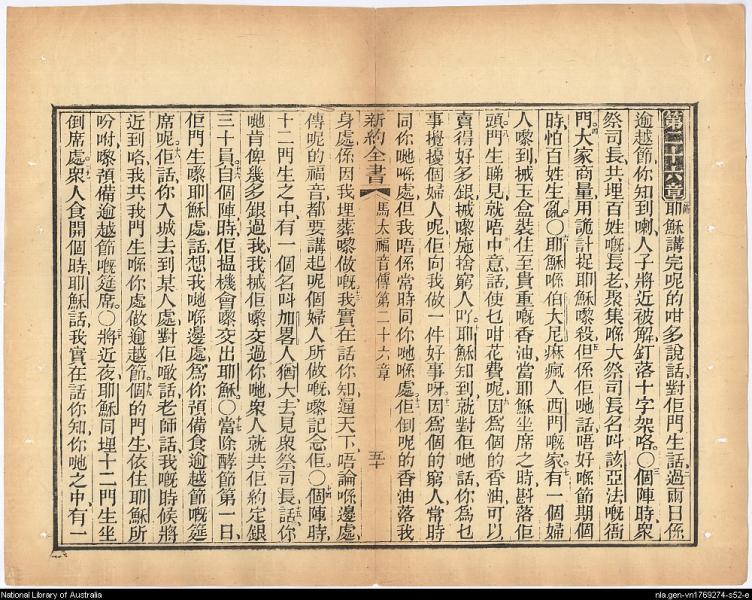 第二十六章耶穌講完呢的咁多說話對佢門生話過兩日係
逾越節你知到喇人子將近被解釘落十字架咯○個陣時衆
祭司長共埋百姓嘅長老聚集喺大祭司長名叫該亞法嘅衙
門大家商量用詭計捉耶穌嚟殺但係佢哋話唔好喺節期個
時怕百姓生亂○耶穌喺伯大尼痳瘋人西門嘅家有一個婦
人嚟到搣玉盒裝住至貴重嘅香油當耶穌坐席之時斟落佢
頭門生睇見就唔中意話使乜咁花費呢因爲個的香油可以
賣得好多銀搣嚟施捨窮人吖耶穌知到就對佢哋話你爲乜
事攪擾個婦人呢佢向我做一件好事呀因爲個的窮人常時
同你哋喺處但我唔係常時同你哋喺處佢倒呢的香油落我
新約全書 馬太福音傳第二十六章 五十
身處係因我埋葬嚟做嘅我實在話你知通天下唔論喺邊處
傳呢的福音都要講起呢個婦人所做嘅嚟記念佢○個陣時
十二門生之中有一個名叫加畧人猶大去見衆祭司長話你
哋肯俾幾多銀過我我搣佢嚟交過你哋衆人就共佢約定銀
三十員自個陣時佢揾機會嚟交出耶穌○當除酵節第一日
佢門生嚟耶穌處話想我哋喺邊處爲你預備食逾越節嘅筵
席呢佢話你入城去到某人處對佢噉話老師話我嘅時候將
近到咯我共我門生喺你處做逾越節個的門生依住耶穌所
吩咐嚟預備逾越節嘅筵席○將近夜耶穌同埋十二門生坐
倒席處衆人食開個時耶穌話我實在話你知你哋之中有一
National Library of Australia
nla.gen-vn1769274-s52-e